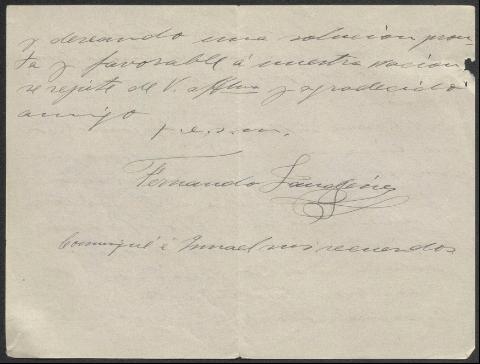 y deseando una solucion pron-
ta y favorable á nuestra Nacion
se repite de V. affmo y agradecido
amigo
q. b. s. m.
Fernando
Comuniqué á Ismael sus recuerdos